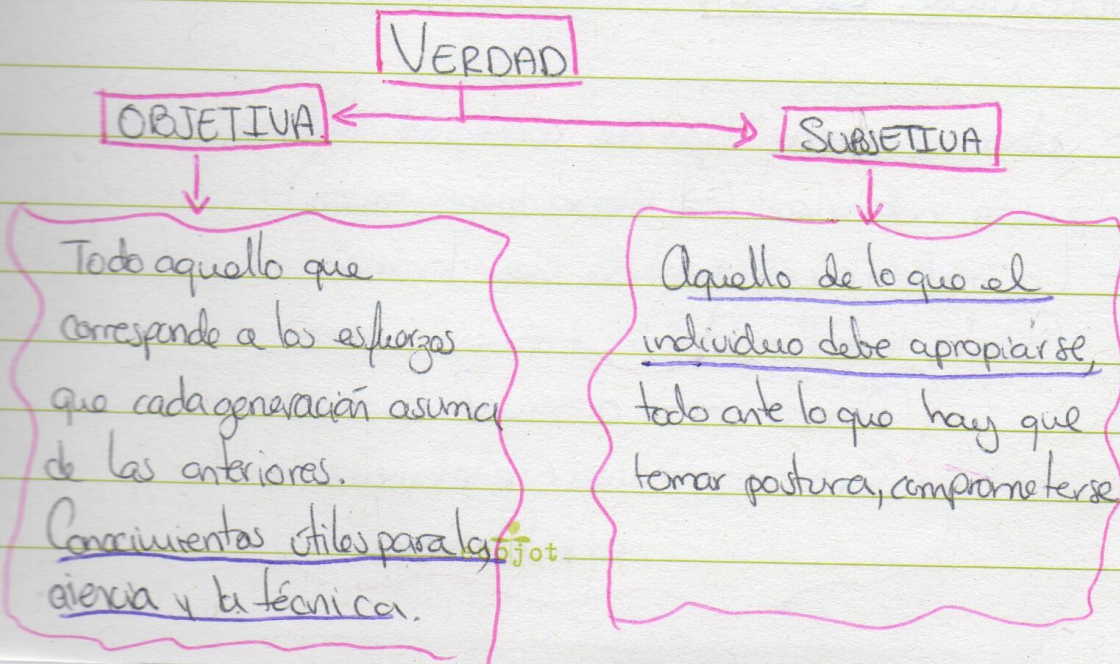 VERDAD
OBJETIVA
SUBJETIVA
Todo aquello que
corresponde a los esfuerzos
que cada generación asuma
de las anteriores.
Conocimientos útiles para la
ciencia y la técnica.
Aquello de lo que el
individuo debe apropiárse,
todo ante lo que hay que
tomar postura, comprometerse
jot